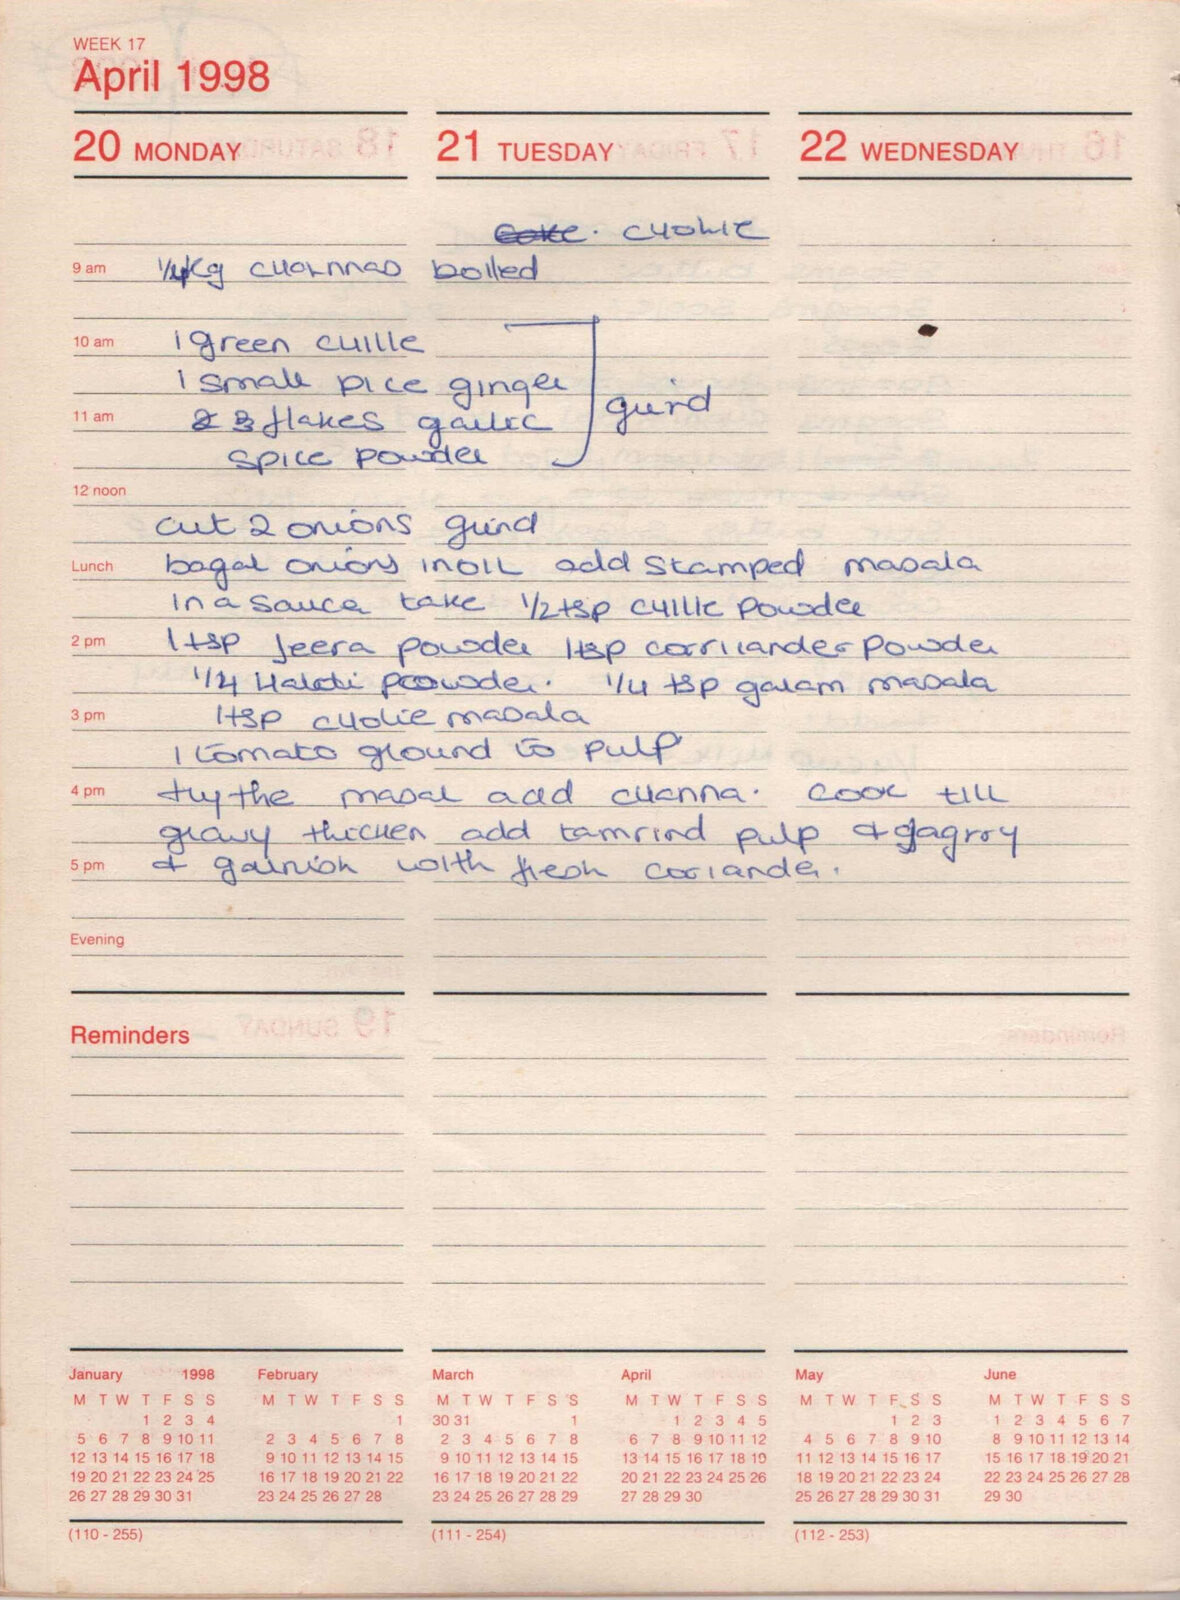 WEEK 17
April 1998
20 MONDAY 21 TUESDAY 22 WEDNESDAY
CHOLIE
9 am 1/4 Kg CHANNAS boiled
10 am 1 green CHILLE
1 small pice ginger
11 am 3 flakes garlic grind
spice powder
12 noon
cut 2 onions grind
Lunch bagal onions in OIL add stamped masala
in a sauce take 1/2 tsp CHILLE powder
2 pm 1 tsp Jeera powder 1 tsp corriander powder
1/4 Haldi powder. 1/4 tsp garam masala
3 pm 1 tsp CHOLIE masala
1 tomato ground to pulp
4 pm fry the masal add CHANNA. COOK till
gravy thicken add tamrind pulp & gagrry
5 pm & garnish with fresh coriander.
Evening
Reminders
January 1998 February March April May June
M T W T F S S M T W T F S S M T W T F S S M T W T F S S M T W T F S S M T W T F S S
1 2 3 4 1 30 31 1 1 2 3 4 5 1 2 3 1 2 3 4 5 6 7
5 6 7 8 9 10 11 2 3 4 5 6 7 8 2 3 4 5 6 7 8 6 7 8 9 10 11 12 4 5 6 7 8 9 10 8 9 10 11 12 13 14
12 13 14 15 16 17 18 9 10 11 12 13 14 15 9 10 11 12 13 14 15 13 14 15 16 17 18 19 11 12 13 14 15 16 17 15 16 17 18 19 20 21
19 20 21 22 23 24 25 16 17 18 19 20 21 22 16 17 18 19 20 21 22 20 21 22 23 24 25 26 18 19 20 21 22 23 24 22 23 24 25 26 27 28
26 27 28 29 30 31 23 24 25 26 27 28 23 24 25 26 27 28 29 27 28 29 30 25 26 27 28 29 30 31 29 30
(110 - 255) (111 - 254) (112 - 253)